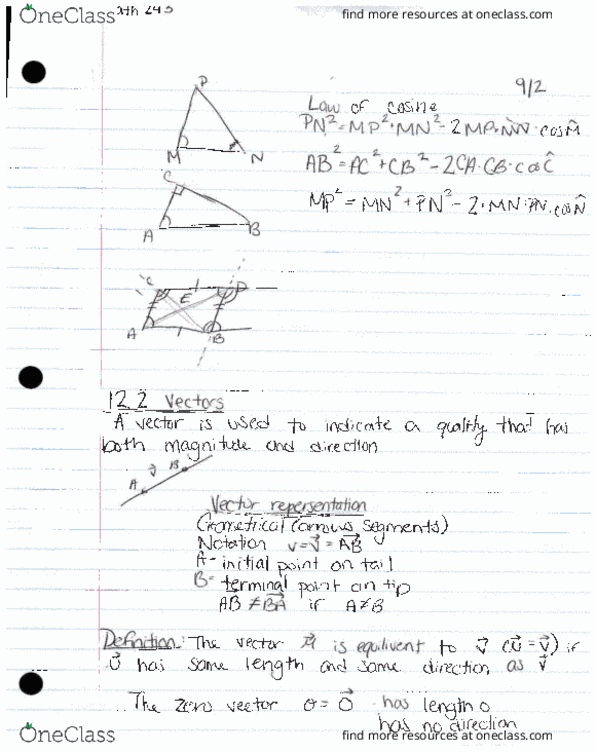 OneClass
ath 243
find more resources at oneclass.com
9/2
P
M
N
Law of cosine
PN² = MP² + MN² - 2MP·MN·cosM̂
C
A
B
AB² = AC² + CB² - 2CA·CB·cosĈ
MP² = MN² + PN² - 2·MN·PN·cosN̂
C
E
D
A
B
12.2 Vectors
A vector is used to indicate a quality that has
both magnitude and direction
A v⃗ B
Vector repersentation
Geometrical (arrows segments)
Notation v = v⃗ = AB⃗
A - initial point on tail
B = terminal point on tip
AB ≠ BA⃗ if A≠B
Definition: The vector u⃗ is equilivent to v⃗ (u⃗ = v⃗) if
u⃗ has same length and same direction as v⃗
The zero vector 0 = 0⃗ - has length 0
has no direction
OneClass
find more resources at oneclass.com